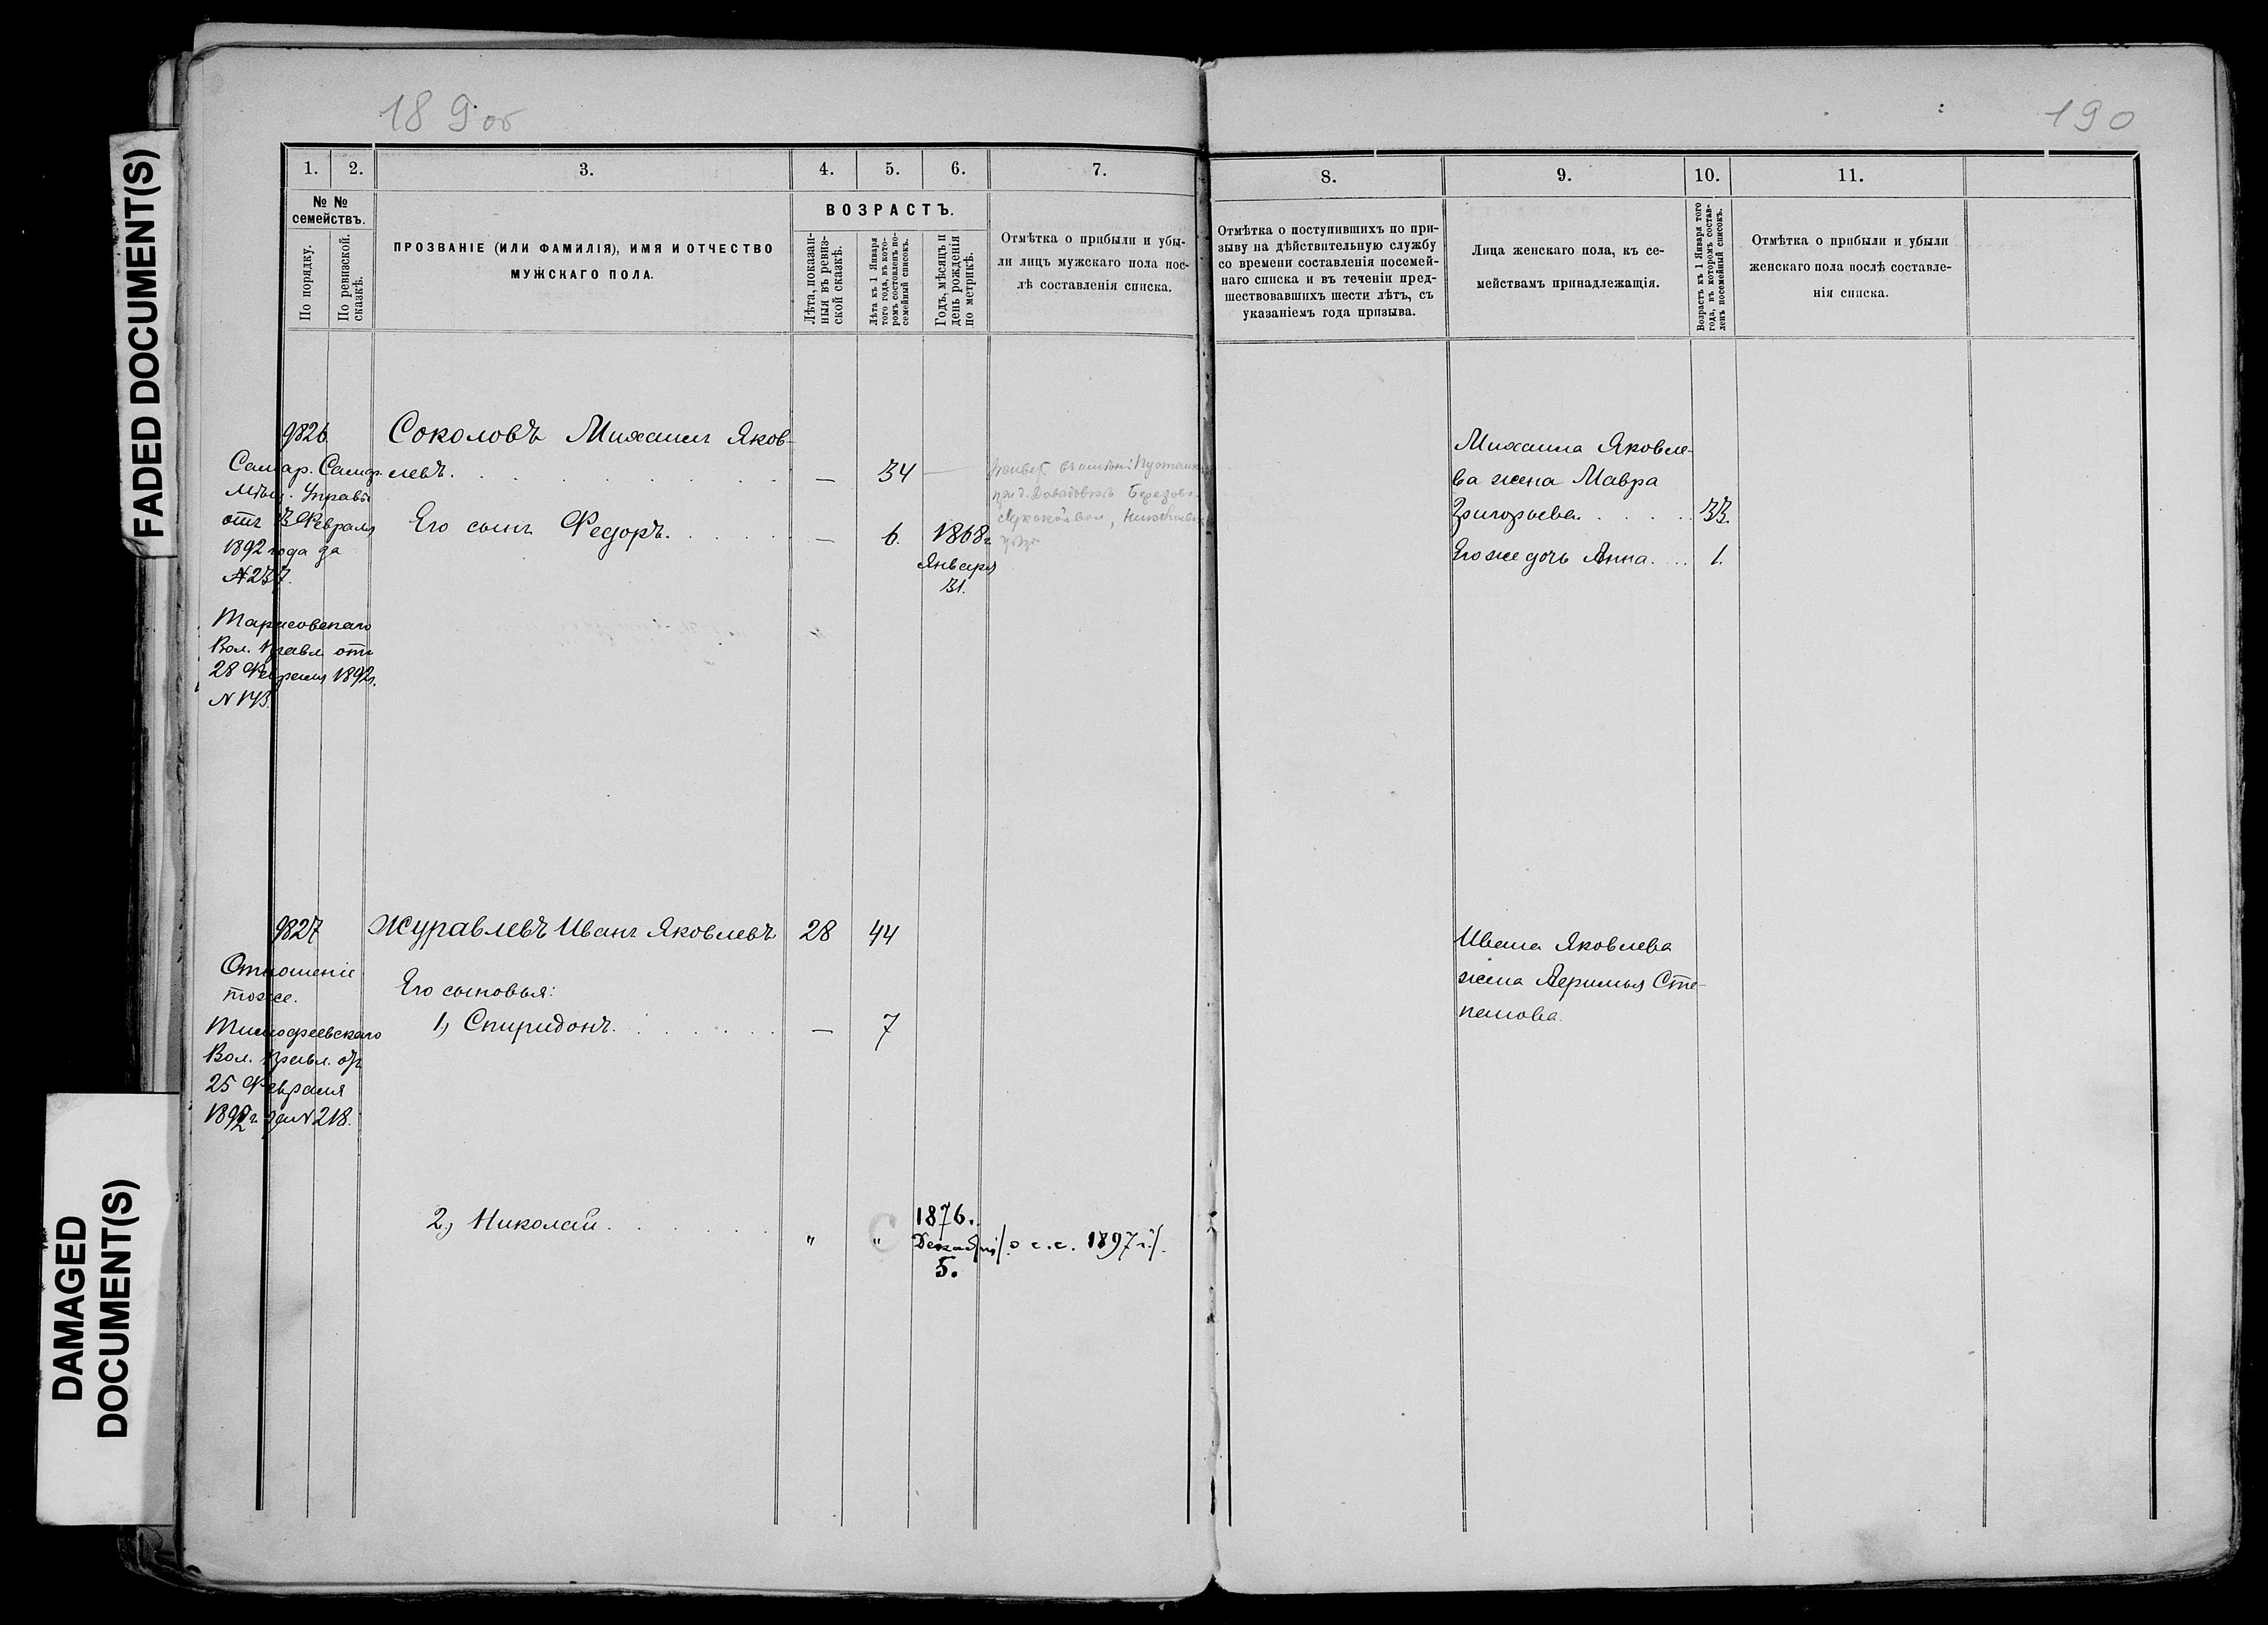 FADED DOCUMENT(S)
DAMAGED
DOCUMENT(S)
189 об
1.
2.
3.
4.
5.
6.
7.
№ №
семействъ.
По порядку.
По ревизской
сказкѣ.
ПРОЗВАНІЕ (ИЛИ ФАМИЛІЯ), ИМЯ И ОТЧЕСТВО
МУЖСКАГО ПОЛА.
ВОЗРАСТЪ.
Лѣта, показан-
ныя въ ревиз-
ской сказкѣ.
Лѣта къ 1 Января
того года, въ кото-
ромъ составленъ по-
семейный списокъ.
Годъ, мѣсяцъ и
день рожденія
по метрикѣ.
Отмѣтка о прибыли и убы-
ли лицъ мужскаго пола пос-
лѣ составленія списка.
9826.
Соколовъ Михаилъ Яков-
левъ. 34
Самар.
Мѣщ. Управы
отъ 3 Февраля
1892 года за
№ 237.
Его сынъ Федоръ. — 6. 1868 г.
Января
31.
Тарасовскаго
Вол. Правл. отъ
28 Февраля 1892 г.
N 143.
9827
Журавлевъ Иванъ Яковлевъ 28 44
Отношеніе
тоже.
Его сыновья:
1, Спиридонъ. — 7
Тимофеевскаго
Вол. Правл. отъ
25 Февраля
1892 г. за N 218.
2, Николай. " " 1876.
Декабря /. о с.с. 1897 г./.
5.
190
8.
9.
10.
11.
Отмѣтка о поступившихъ по при-
зыву на дѣйствительную службу
со времени составленія посемей-
наго списка и въ теченіи пред-
шествовавшихъ шести лѣтъ, съ
указаніемъ года призыва.
Лица женскаго пола, къ се-
мействамъ принадлежащія.
Возрастъ къ 1 Января того
года, въ которомъ состав-
ленъ посемейный списокъ.
Отмѣтка о прибыли и убыли
женскаго пола послѣ составле-
нія списка.
Михаила Яковле-
ва жена Мавра
Григорьева. 33.
Его же дочь Анна. 1.
Ивана Яковлева
жена Сте-
панова.